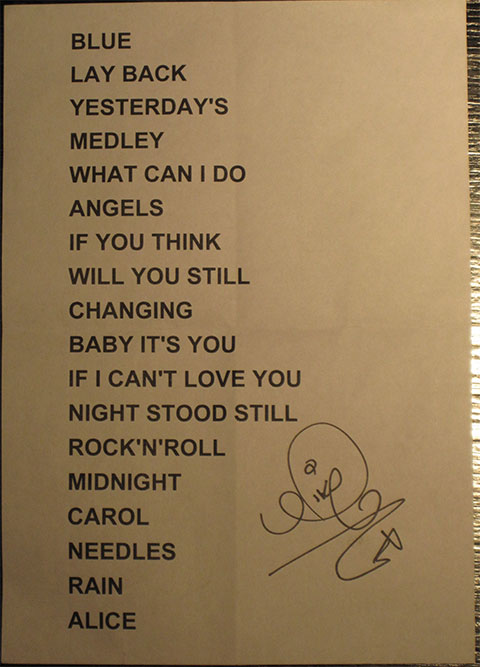 BLUE
LAY BACK
YESTERDAY'S
MEDLEY
WHAT CAN I DO
ANGELS
IF YOU THINK
WILL YOU STILL
CHANGING
BABY IT'S YOU
IF I CAN'T LOVE YOU
NIGHT STOOD STILL
ROCK'N'ROLL
MIDNIGHT
CAROL
NEEDLES
RAIN
ALICE